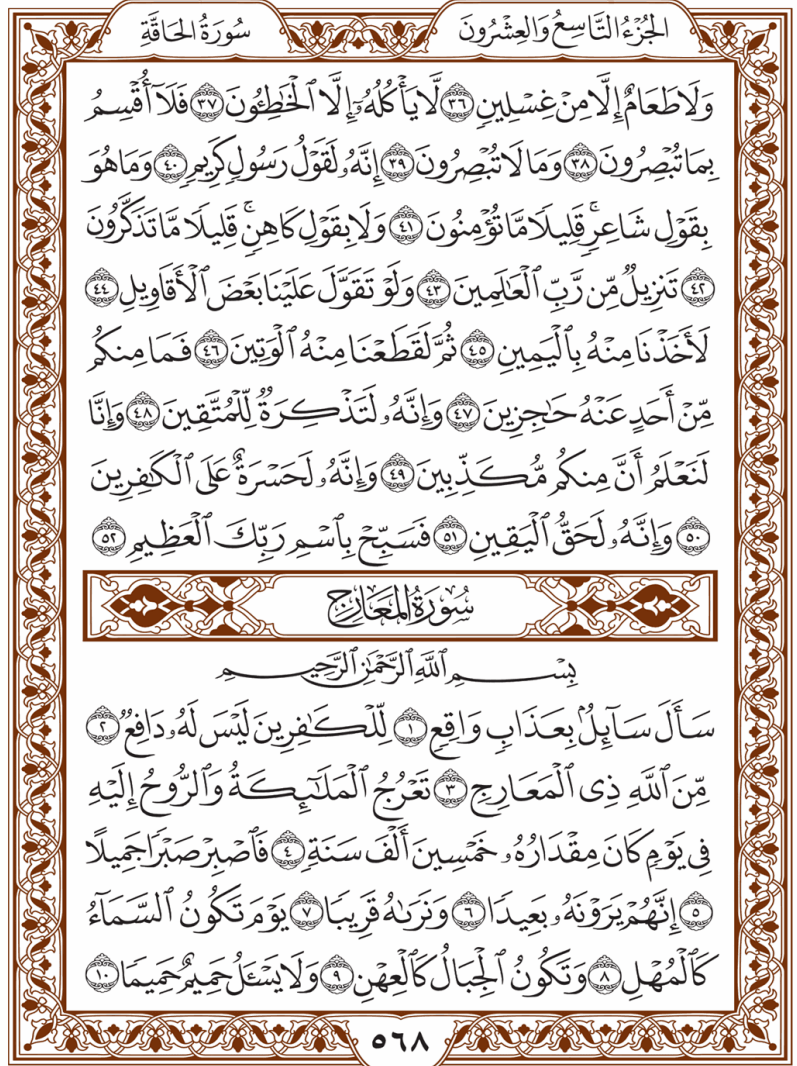 الجُزْءُ التَّاسِعُ وَالعِشْرُونَ
سُورَةُ الحَاقَّةِ
وَلَا طَعَامٌ إِلَّا مِنْ غِسْلِينٍ ٣٦ لَّا يَأْكُلُهُۥٓ إِلَّا ٱلْخَٰطِـُٔونَ ٣٧ فَلَآ أُقْسِمُ
بِمَا تُبْصِرُونَ ٣٨ وَمَا لَا تُبْصِرُونَ ٣٩ إِنَّهُۥ لَقَوْلُ رَسُولٍ كَرِيمٍ ٤٠ وَمَا هُوَ
بِقَوْلِ شَاعِرٍۚ قَلِيلًا مَّا تُؤْمِنُونَ ٤١ وَلَا بِقَوْلِ كَاهِنٍۚ قَلِيلًا مَّا تَذَكَّرُونَ
٤٢ تَنزِيلٌ مِّن رَّبِّ ٱلْعَٰلَمِينَ ٤٣ وَلَوْ تَقَوَّلَ عَلَيْنَا بَعْضَ ٱلْأَقَاوِيلِ ٤٤
لَأَخَذْنَا مِنْهُ بِٱلْيَمِينِ ٤٥ ثُمَّ لَقَطَعْنَا مِنْهُ ٱلْوَتِينَ ٤٦ فَمَا مِنكُم
مِّنْ أَحَدٍ عَنْهُ حَٰجِزِينَ ٤٧ وَإِنَّهُۥ لَتَذْكِرَةٌ لِّلْمُتَّقِينَ ٤٨ وَإِنَّا
لَنَعْلَمُ أَنَّ مِنكُم مُّكَذِّبِينَ ٤٩ وَإِنَّهُۥ لَحَسْرَةٌ عَلَى ٱلْكَٰفِرِينَ
٥٠ وَإِنَّهُۥ لَحَقُّ ٱلْيَقِينِ ٥١ فَسَبِّحْ بِٱسْمِ رَبِّكَ ٱلْعَظِيمِ ٥٢
سُورَةُ المَعَارِجِ
بِسْمِ ٱللَّهِ ٱلرَّحْمَٰنِ ٱلرَّحِيمِ
سَأَلَ سَآئِلٌۢ بِعَذَابٍ وَاقِعٍ ١ لِّلْكَٰفِرِينَ لَيْسَ لَهُۥ دَافِعٌ ٢
مِّنَ ٱللَّهِ ذِى ٱلْمَعَارِجِ ٣ تَعْرُجُ ٱلْمَلَٰٓئِكَةُ وَٱلرُّوحُ إِلَيْهِ
فِى يَوْمٍ كَانَ مِقْدَارُهُۥ خَمْسِينَ أَلْفَ سَنَةٍ ٤ فَٱصْبِرْ صَبْرًا جَمِيلًا
٥ إِنَّهُمْ يَرَوْنَهُۥ بَعِيدًا ٦ وَنَرَىٰهُ قَرِيبًا ٧ يَوْمَ تَكُونُ ٱلسَّمَآءُ
كَٱلْمُهْلِ ٨ وَتَكُونُ ٱلْجِبَالُ كَٱلْعِهْنِ ٩ وَلَا يَسْـَٔلُ حَمِيمٌ حَمِيمًا ١٠
٥٦٨